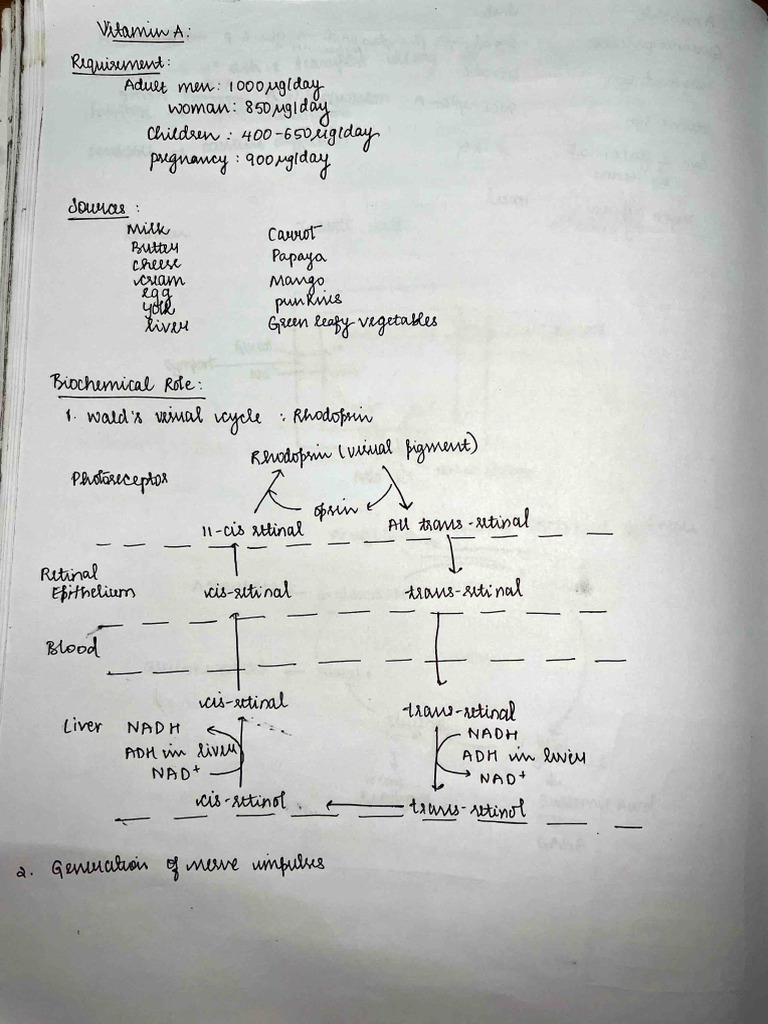 Vitamin A:
Requirement:
Adult men: 1000 µg/day
woman: 850 µg/day
Children: 400-650 µg/day
pregnancy: 900 µg/day
Sources:
Milk Carrot
Butter Papaya
cheese Mango
cream punkins
egg Green leafy vegetables
yolk
liver
Biochemical Role:
1. Wald's visual cycle: Rhodopsin
Rhodopsin (visual pigment)
Photoreceptor
opsin
11-cis retinal All trans-retinal
Retinal Epithelium cis-retinal trans-retinal
Blood
cis-retinal trans-retinal
Liver NADH NADH
ADH in liver ADH in liver
NAD+ NAD+
cis-retinol trans-retinol
2. Generation of nerve impulses